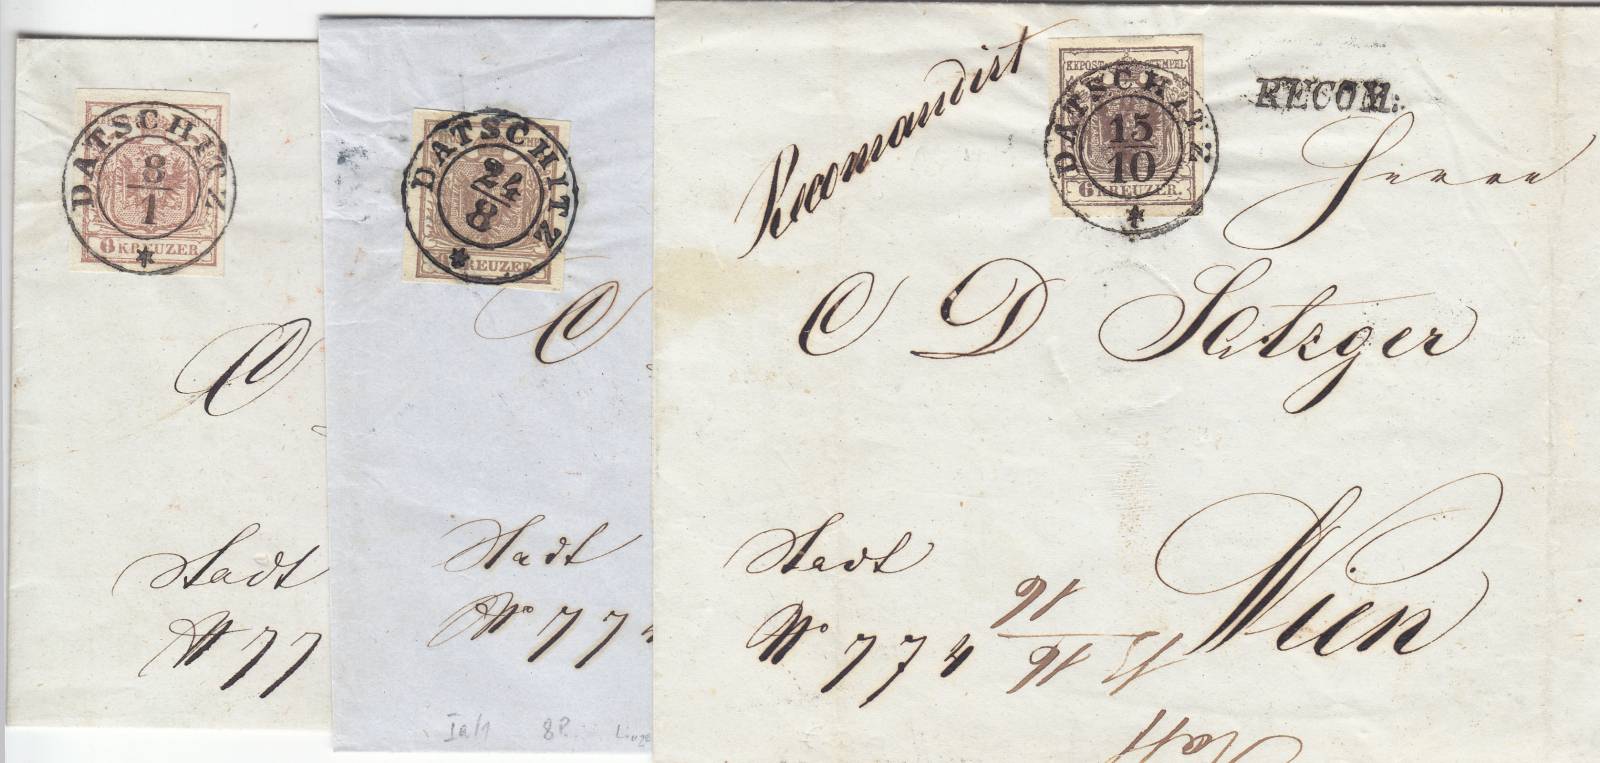 DATSCHITZ
8
1
6 KREUZER
C
Stadt
N 77
DATSCHITZ
24
8
KREUZER
C
Stadt
No 774
Ia/1 8P.
Recomandirt
KKPOST-STEMPEL
DATSCHITZ
15
10
6 KREUZER.
RECOM:
Herrn
C D Satzger
Stadt
No 774
Wien
16
16